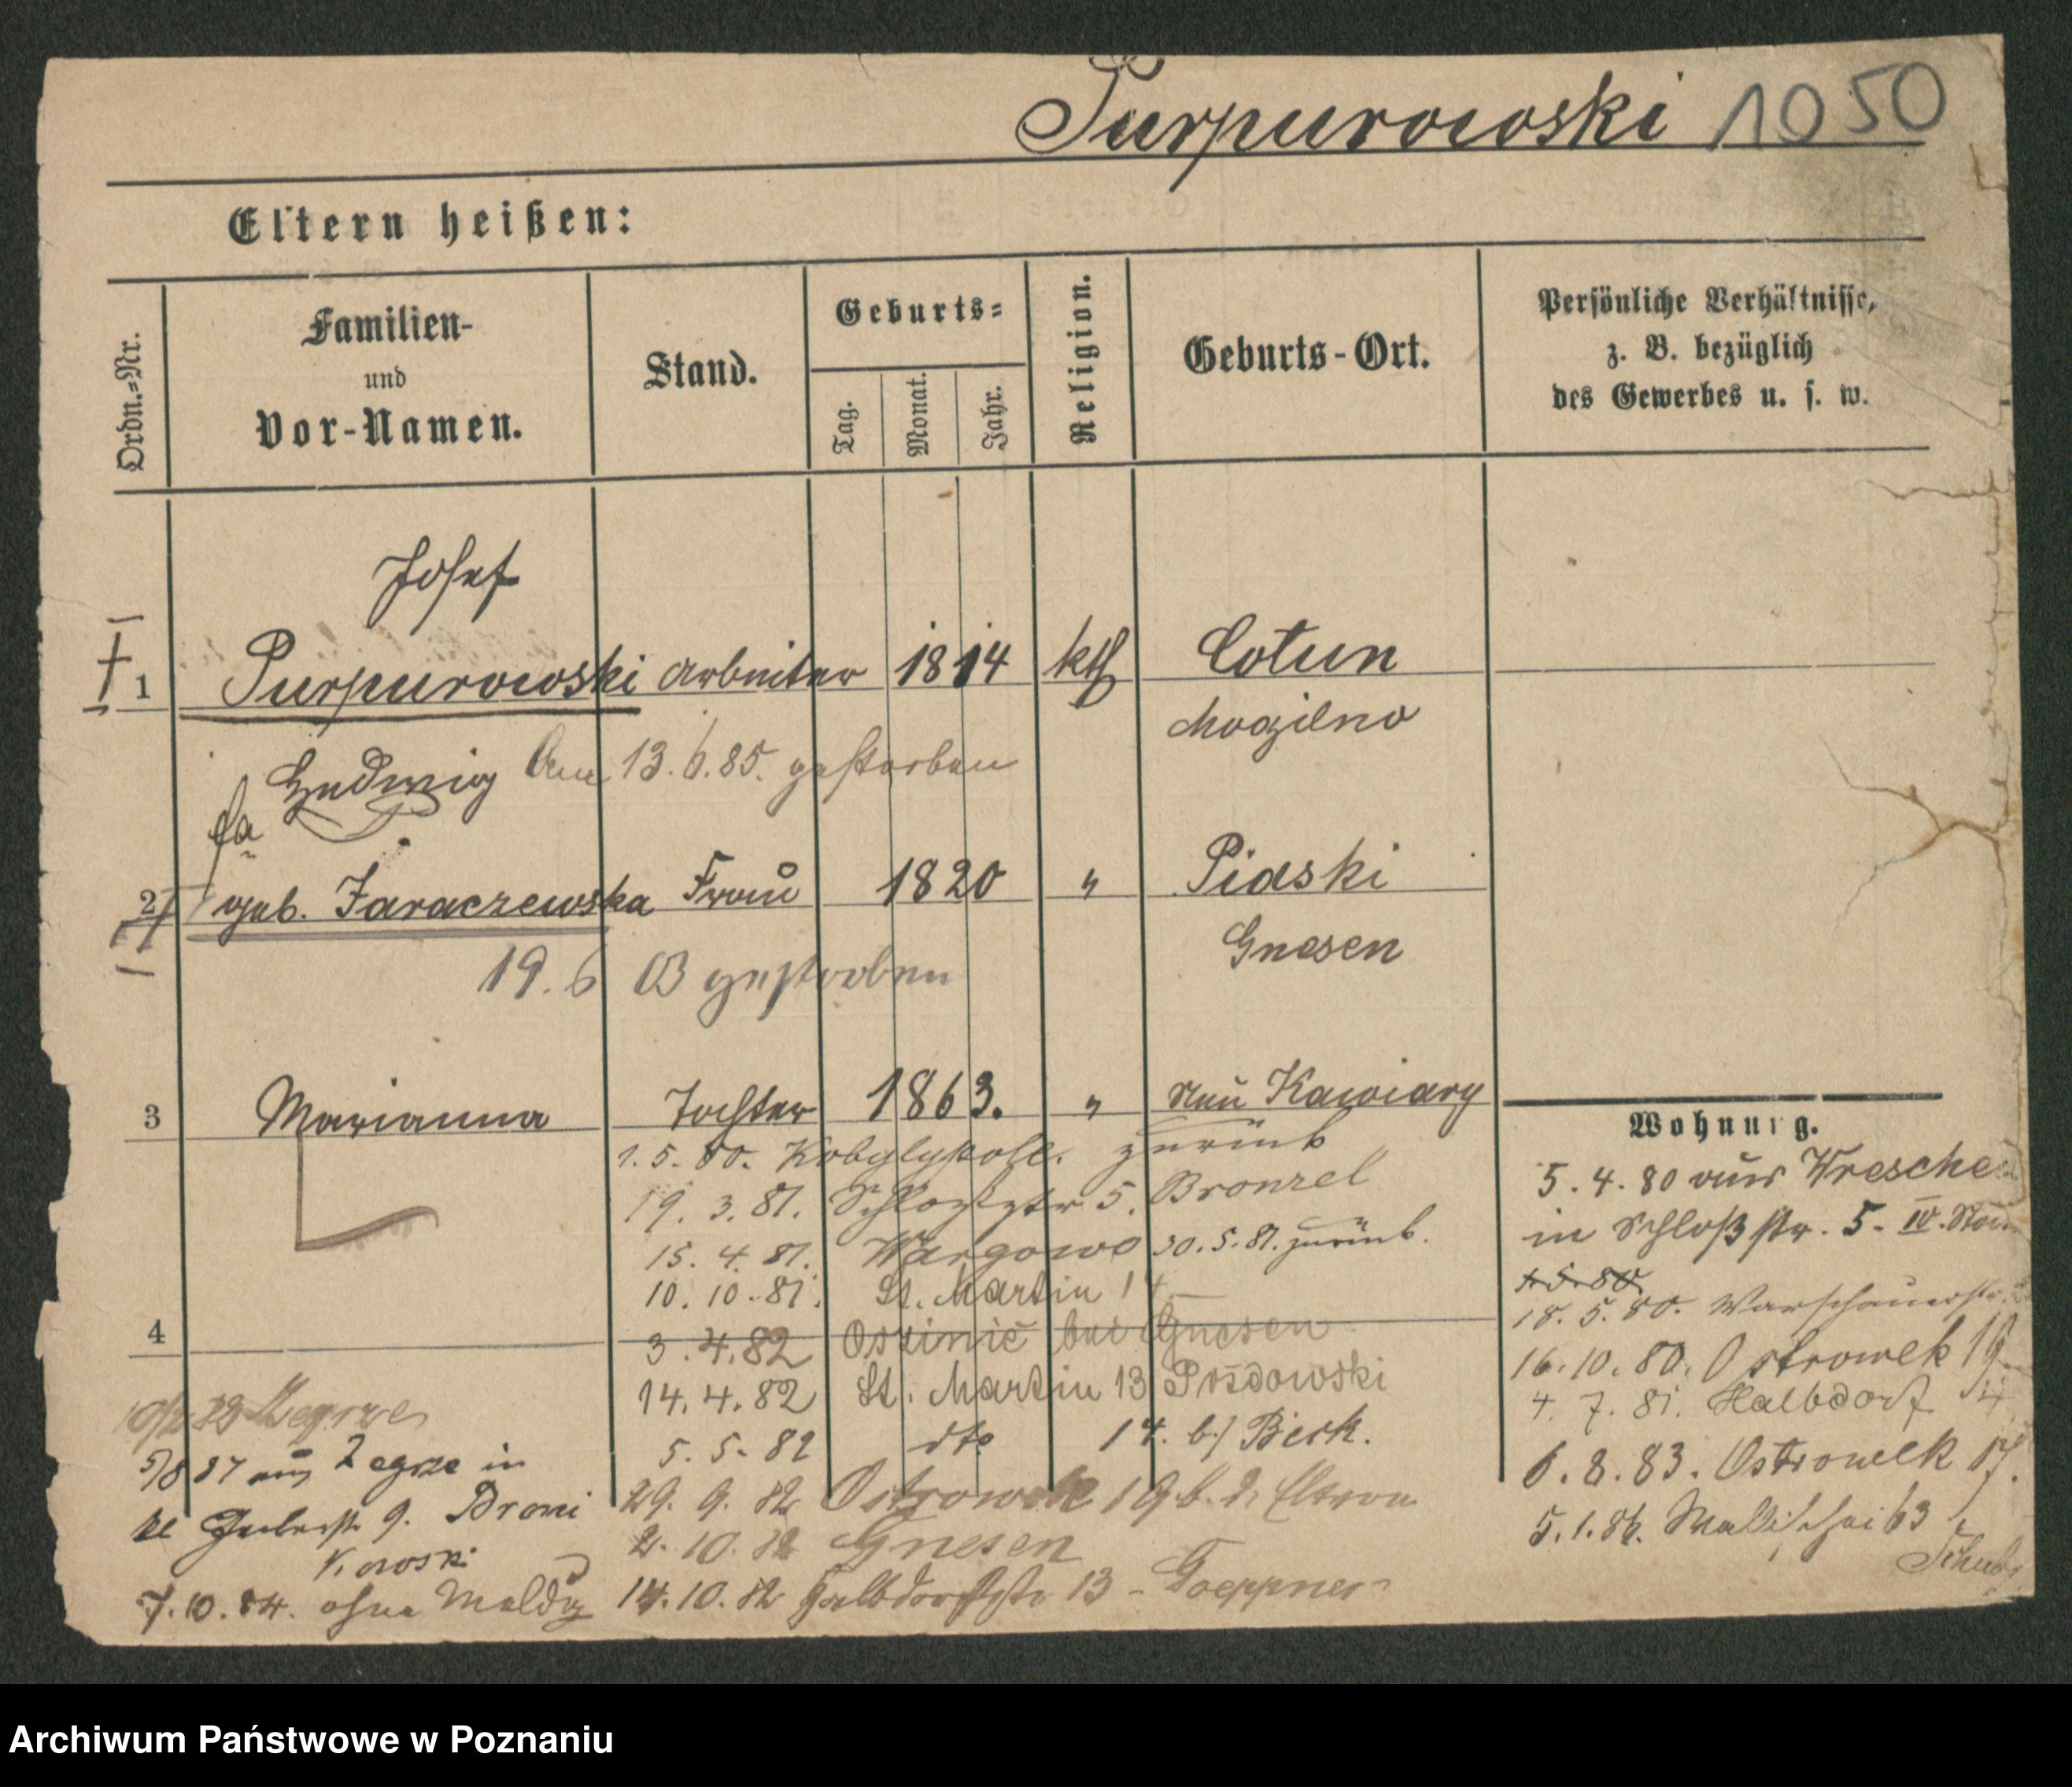 Purpurowski 1050
Eltern heißen:
Ordn.=Nr.
Familien-
und
Vor-Namen.
Stand.
Geburts=
Tag.
Monat.
Jahr.
Religion.
Geburts-Ort.
Persönliche Verhältnisse,
z. B. bezüglich
des Gewerbes u. s. w.
Josef
1 Purpurowski Arbeiter 1814 kth Cotun
Mogilno
Hedwig Am 13.6.85. gestorben
2 geb. Jaraczewska Frau 1820 " Piaski
Gnesen
19.6 gestorben
3 Marianna Tochter 1863. " Neu Kawiary
1.5.80. Kobylypole. zurück
19.3.81. Schloßstr 5. Bronzel
15.4.81. Wargowo 30.5.81. zurück.
10.10.81. St. Martin 14
4
3.4.82 bei Gnesen
14.4.82 St. Martin 13
5.5.82 dto 14. b/ Bieck.
29.9.82 Ostrowek 19 b. d. Eltern
2.10.82 Gnesen
14.10.82 Halbdorfstr 13 - Toeppner
Wohnung.
5.4.80 aus Wreschen
in Schloßstr. 5. IV.
1.5.80
18.5.80. Warschauerstr.
16.10.80. Ostrowek 19
4.7.81. Halbdorf
6.8.83. Ostrowek 17.
5.1.86. Wallischei 63
Zegrze
5/8 87 aus Zegrze in
kl Gerberstr 9.
7.10.84. ohne Meldg
Archiwum Państwowe w Poznaniu